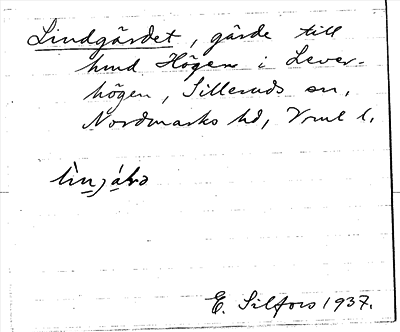 Lindgärdet, gärde till
hmd. Högen i Lever-
högen, Silleruds sn,
Nordmarks hd, Vrml l.
E. Silfors 1937.